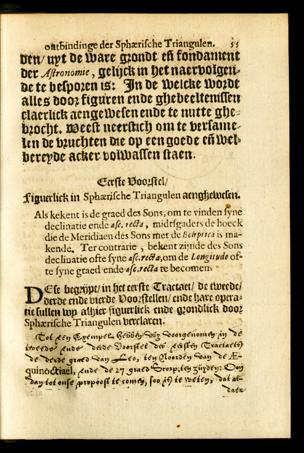 ontbindinge der Sphærische Triangulen. 55
den/ uyt de ware grondt eñ fondament
der Astronomie, gelijck in het naervolgen-
de te besporen is: In de welcke wordt
alles door figuren ende ghebeeltenissen
claerlick aengewesen ende te nutte ghe-
brocht. Weest neerstich om te versame-
len de vruchten die op een goede eñ wel-
bereyde acker volwassen staen.
Eerste Voorstel/
Figuerlick in Sphærische Triangulen aenghewesen.
Als kekent is de graed des Sons, om te vinden syne
declinatie ende asc. recta, midtsgaders de hoeck
die de Meridiaen des Sons met de Ecliptica is ma-
kende. Ter contrarie, bekent zijnde des Sons
declinatie ofte syne asc. recta, om de Longitudo of-
te syne graed ende asc. recta te becomen.
DEse begrijpt/ in het eerste Tractaet/ de tweede/
derde ende vierde Voorstellen/ ende hare opera-
tie sullen wy alhier figuerlick ende grondlick door
Sphærische Triangulen verclaren.
Tot een Exempel hebben wy voorgenomen in de
tweede ende derde Voorstel des eersten Tractaets
de derde graed van Leo, ten Noorden van de Æ-
quinoctiael, ende de 27 graed Scorp; ten zuyden: Om
dan tot onse propoost te comen, soo is te weten, dat al-